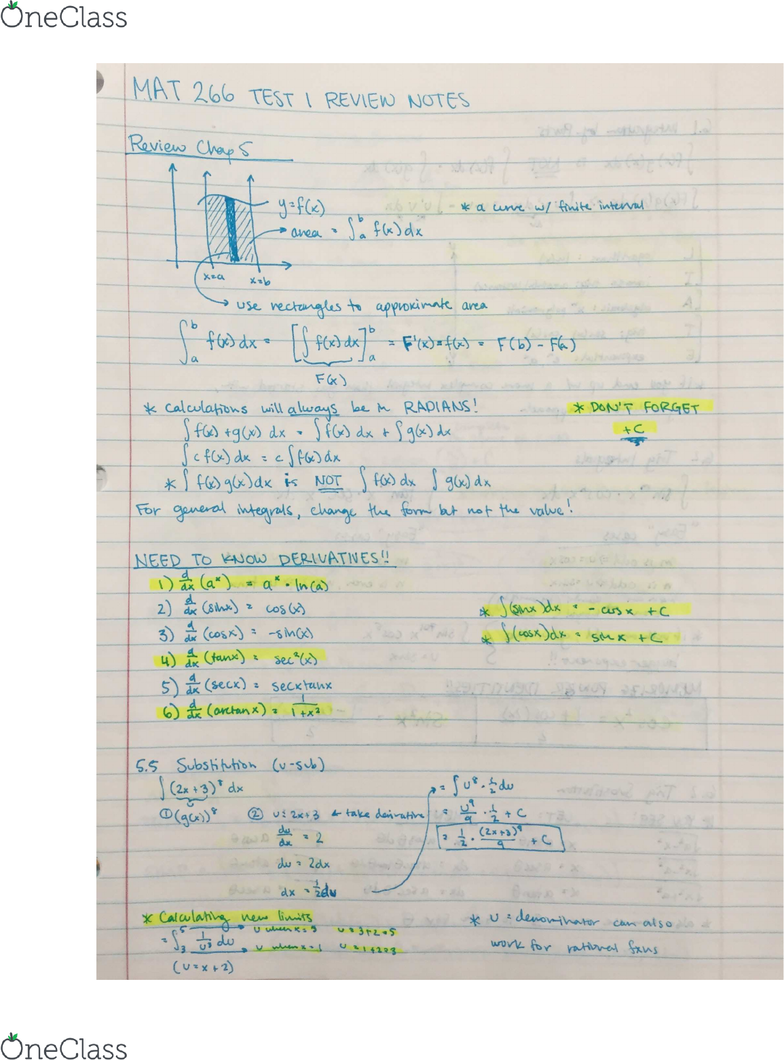 OneClass
MAT 266 TEST 1 REVIEW NOTES
Review Chap 5
y=f(x)
* a curve w/ finite interval
area = ∫ₐᵇ f(x) dx
x=a x=b
use rectangles to approximate area
∫ₐᵇ f(x) dx = [∫ f(x) dx]ₐᵇ = F'(x) = f(x) = F(b) - F(a)
F(x)
* Calculations will always be in RADIANS!
* DON'T FORGET
+C
∫ f(x) + g(x) dx = ∫ f(x) dx + ∫ g(x) dx
∫ c f(x) dx = c ∫ f(x) dx
* ∫ f(x) g(x) dx is NOT ∫ f(x) dx ∫ g(x) dx
For general integrals, change the form but not the value!
NEED TO KNOW DERIVATIVES!!
1) d/dx (aˣ) = aˣ · ln(a)
2) d/dx (sinx) = cos(x)
* ∫(sinx)dx = - cos x + C
3) d/dx (cosx) = -sin(x)
* ∫(cosx)dx = sin x + C
4) d/dx (tanx) = sec²(x)
5) d/dx (secx) = secxtanx
6) d/dx (arctan x) = 1/1+x²
5.5 Substitution (u-sub)
∫ (2x+3)⁸ dx
① (g(x))⁸
② u = 2x+3 ← take derivative
du/dx = 2
du = 2dx
dx = ½du
= ∫ u⁸ · ½ du
= u⁹/9 · ½ + C
= ½ · (2x+3)⁹/9 + C
* Calculating new limits
= ∫₃⁵ 1/u³ du
u when x=3 u=3+2=5
u when x=1 u=1+2=3
(u = x+2)
* u = denominator can also
work for rational fxns
OneClass